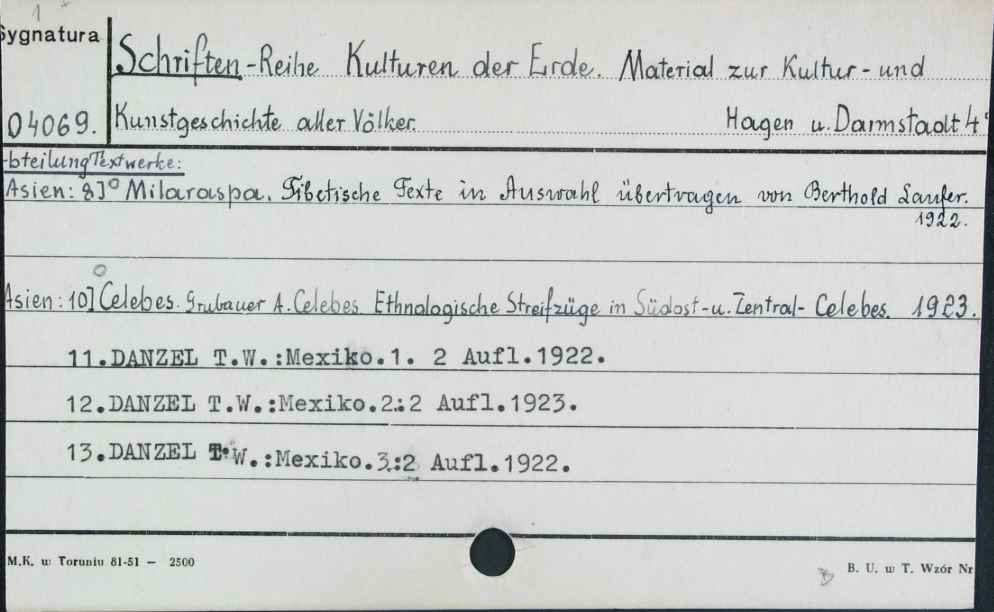 1
Sygnatura
Schriften-Reihe Kulturen der Erde. Material zur Kultur- und
04069. Kunstgeschichte aller Völker. Hagen u. Darmstadt 4°
-bteilung Textwerke:
Asien: 8]° Milaraspa. Tibetische Texte in Auswahl übertragen von Berthold Laufer.
1922.
Asien: 10] Celebes. Grubauer A. Celebes. Ethnologische Streifzüge in Südost- u. Zentral- Celebes. 1923.
11.DANZEL T.W.:Mexiko.1. 2 Aufl.1922.
12.DANZEL T.W.:Mexiko.2.:2 Aufl.1923.
13.DANZEL T.W.:Mexiko.3.:2 Aufl.1922.
M.K. w Toruniu 81-51 — 2500
B. U. w T. Wzór Nr